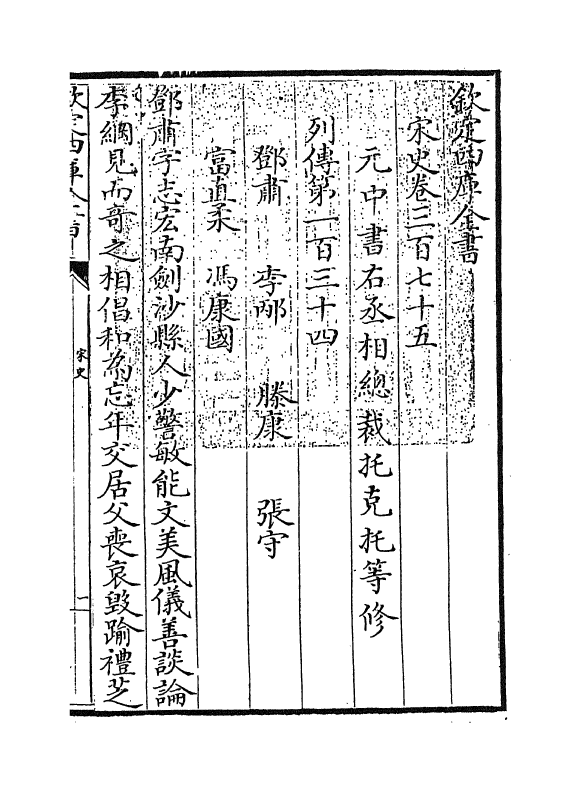 欽定四庫全書
宋史卷三百七十五
元中書右丞相總裁托克托等修
列傳第一百三十四
鄧肅 李邴 滕康 張守
富直柔 馮康國
鄧肅字志宏南劍沙縣人少警敏能文美風儀善談論
李綱見而奇之相倡和為忘年交居父喪哀毀踰禮芝
欽定四庫全書
宋史
一